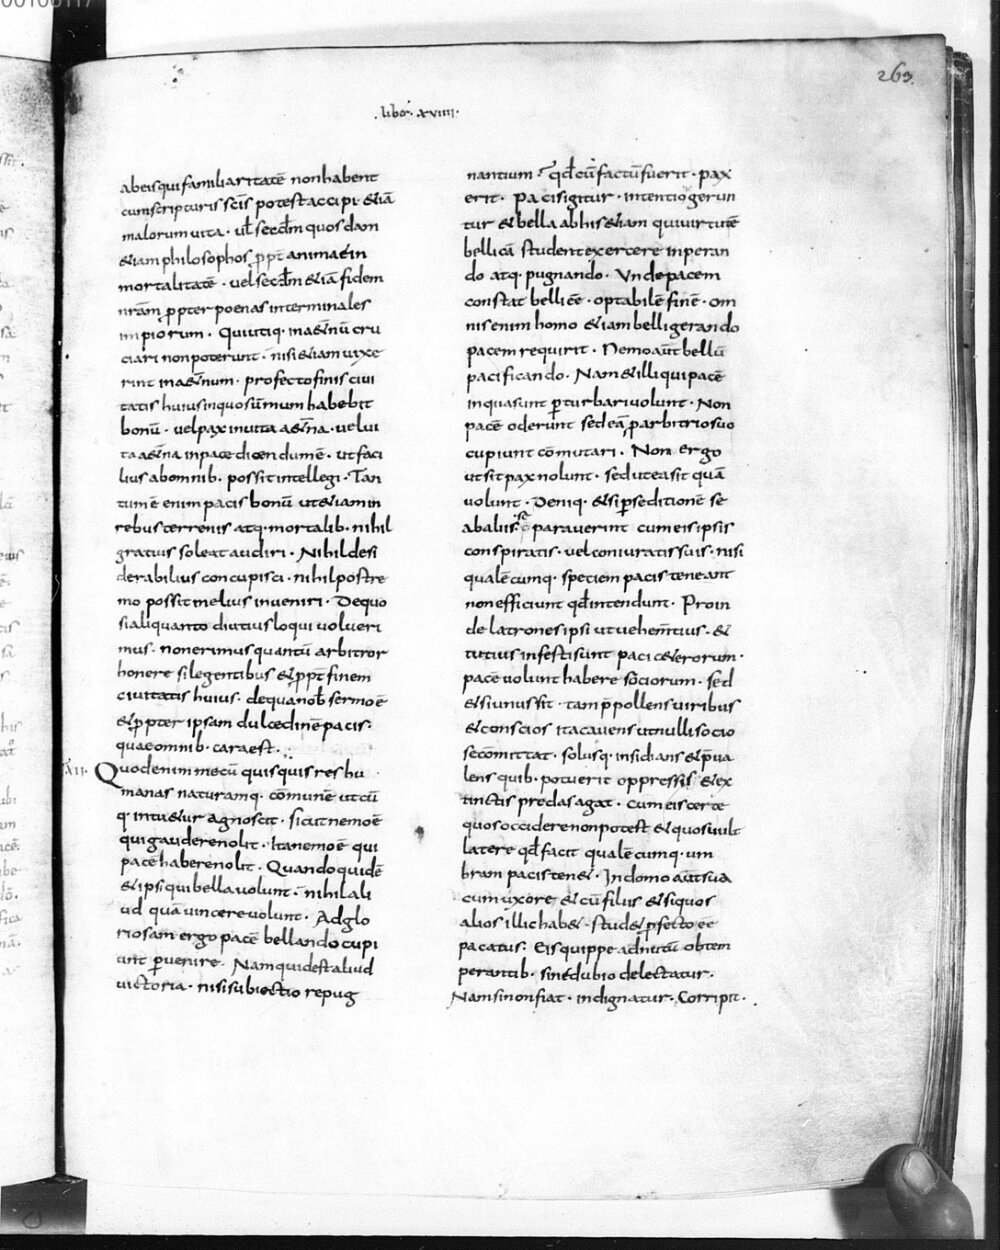 263
liber · xviiii ·
ab eis qui familiaritatē non habent
cum scripturis scīs potest accipi · & iā
malorum uita · uł secđm quos dam
& iam philosophos ppt̄ animae in
mortalitatē · uel secđm & iā fidem
nrām ppter poenas interminales
impiorum · Qui utiq · in a&nū cru
ciari non poterunt · nisi & iam uixe
rint in a&num · profecto finis ciui
tatis huius in quo sūmum habebit
bonū · uel pax in uita a&na · uel ui
ta a&na in pace dicendum ē · ut faci
lius ab omnib · possit intellegi · Tan
tum ē enim pacis bonū ut & iam in
rebus terrenis atq · mortalib · nihil
gratius soleat audiri · Nihil desi
derabilius concupisci · nihil postre
mo possit melius inueniri · De quo
si aliquanto diutius loqui uolueri
mus · non erimus quantū arbitror
honere si legentibus & ppt̄ finem
ciuitatis huius · de qua nob̄ sermo ē
& ppter ipsam dulcedinē pacis ·
quae omnib · cara est ·
XII · Quod enim mecū quisquis res hu
manas naturamq · cōmunē ut cū
q · intu&ur agnoscit · sicut nemo ē
qui gaudere nolit · Ita nemo ē qui
pacē habere nolit · Quando quidē
& ipsi qui bella uolunt · nihil ali
ud quā uincere uolunt · Ad glo
riosam ergo pacē bellando cupi
unt puenire · Nam quid est aliud
uictoria · nisi subiectio repug
nantium ? qđ cū factū fuerit · pax
erit · Pacis igitur · intentio gerun
tur & bella ab his & iam qui uirtutē
bellicā student exercere inperan
do atq · pugnando · Unde pacem
constat belli eē · optabilē finē · om
nis enim homo & iam belligerando
pacem requirit · Nemo aūt bellū
pacificando · Nam & illi qui pacē
in qua sunt pturbari uolunt · Non
pacē oderunt sed eā p arbitrio suo
cupiunt cōmutari · Non ergo
ut sit pax nolunt · sed ut ea sit quā
uolunt · Deniq · & si p seditionē se
ab aliis separauerint cum eis ipsis
conspiratis · uel coniuratis suis · nisi
qualē cumq · speciem pacis teneant
non efficiunt qđ intendunt · Proin
de latrones ipsi ut uehemtius · &
tutius infesti sunt paci c&erorum ·
pacē uolunt habere sociorum · sed
& si unus sit · tam p̄pollens uiribus
& conscios ita cauens ut nulli socio
se cōmittat · solusq · insidians & p̄ua
lens quib · potuerit oppressis & ex
tinctis predas agat · cum eis certe
quos occidere non potest & quos uult
latere qđ facit qualē cumq · um
bram pacis ten& · In domo aūt sua
cum uxore & cū filiis & si quos
alios illic hab& · stud& pfecto eē
pacatus · Eis quippe ad nutū obtem
perantib · sine dubio delectatur ·
Nam si non fiat · indignatur · Corripit ·